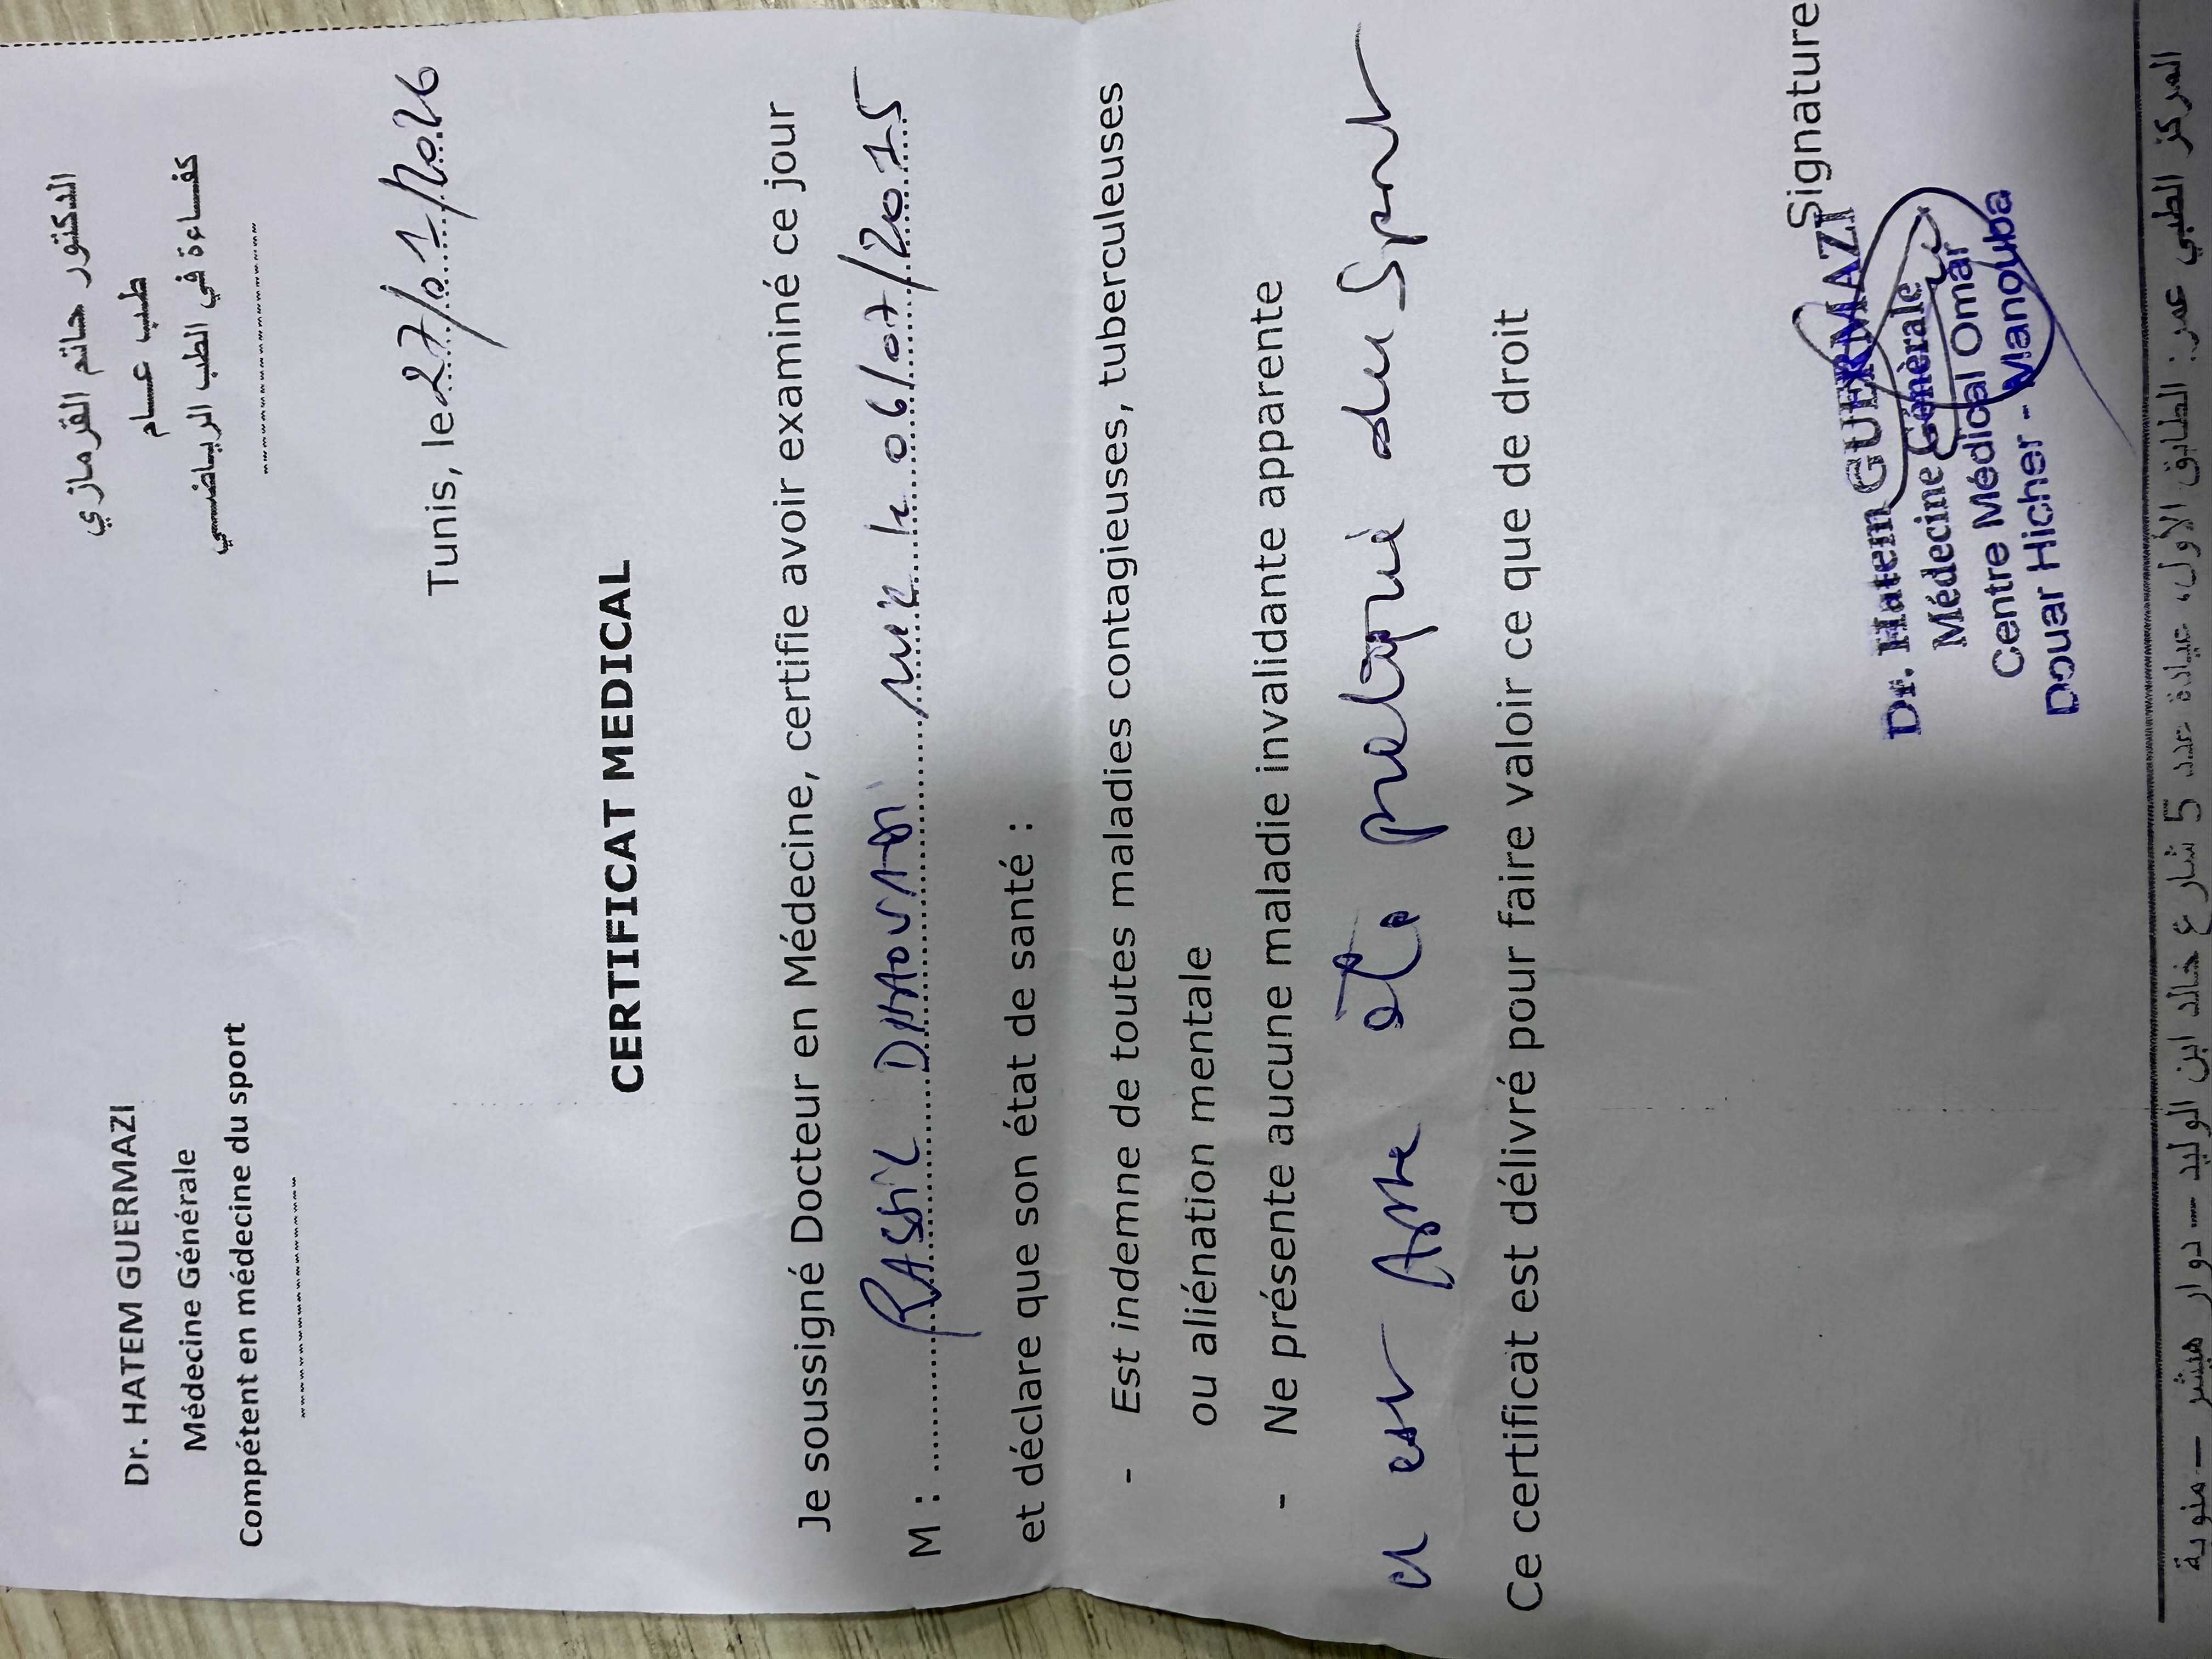 Dr. HATEM GUERMAZI
Médecine Générale
Compétent en médecine du sport
الدكتور حاتم القرمازي
طب عـــام
كفـــاءة في الطب الرياضـــي
Tunis, le 27/01/2026
CERTIFICAT MEDICAL
Je soussigné Docteur en Médecine, certifie avoir examiné ce jour
M : RASSIL DHAOUADI né le 06/07/2015
et déclare que son état de santé :
- Est indemne de toutes maladies contagieuses, tuberculeuses
ou aliénation mentale
- Ne présente aucune maladie invalidante apparente
et est Apte à la pratique du Sport
Ce certificat est délivré pour faire valoir ce que de droit
Signature
Dr. Hatem GUERMAZI
Médecine Générale
Centre Médical Omar
Douar Hicher - Manouba
المركز الطبي عمر: الطابق الأول، عيادة عدد 5 شارع خالد ابن الوليد – دوار هيشر – منوبة